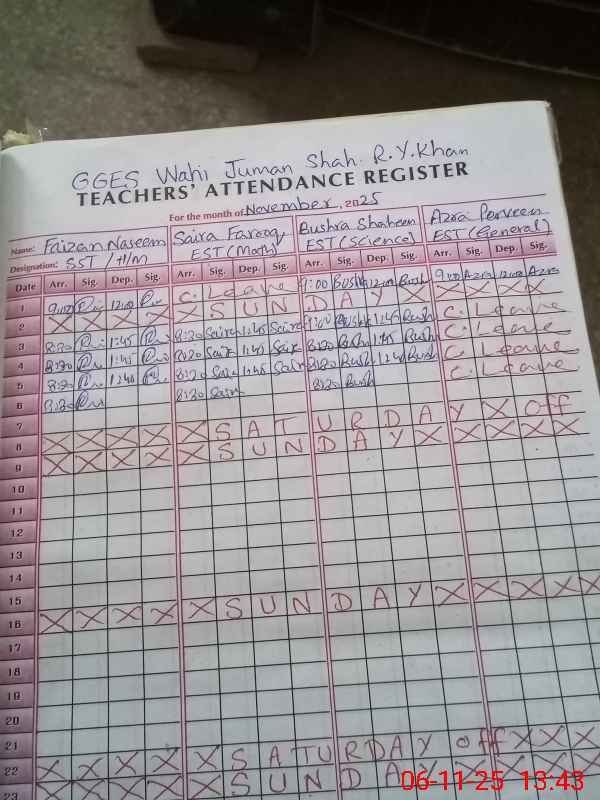 GGES Wahi Juman Shah. R.Y.Khan
TEACHERS' ATTENDANCE REGISTER
For the month of November, 2025
Name: Faizan Naseem Saira Farooq Bushra Shaheen Azra Perveen
Designation: SST /H/M EST (Math) EST (Science) EST (General)
Date Arr. Sig. Dep. Sig. Arr. Sig. Dep. Sig. Arr. Sig. Dep. Sig. Arr. Sig. Dep. Sig.
1 9:00 12:00 C. Leave 9:00 Bush 12:00 Bush 9:00 Azra 12:00 Azra
2 X X X X X S U N D A Y X X X X
3 8:30 1:45 8:30 Saira 1:45 Saira Bush 1:45 Bush C. Leave
4 8:30 1:45 8:30 Saira 1:45 Saira 8:30 Bush 1:45 Bush C. Leave
5 8:30 8:30 Saira 1:45 Saira 8:30 Bush Bush C. Leave
6 8:30 8:30 Saira 8:30 Bush
7
8 X X X X X S A T U R D A Y X off
9 X X X X X S U N D A Y X X X X X
10
11
12
13
14
15
16 X X X X X S U N D A Y X X X X X
17
18
19
20
21
22 X X X X X S A T U R D A Y off X X X
23 X S U N D A Y X
06-11-25 13:43